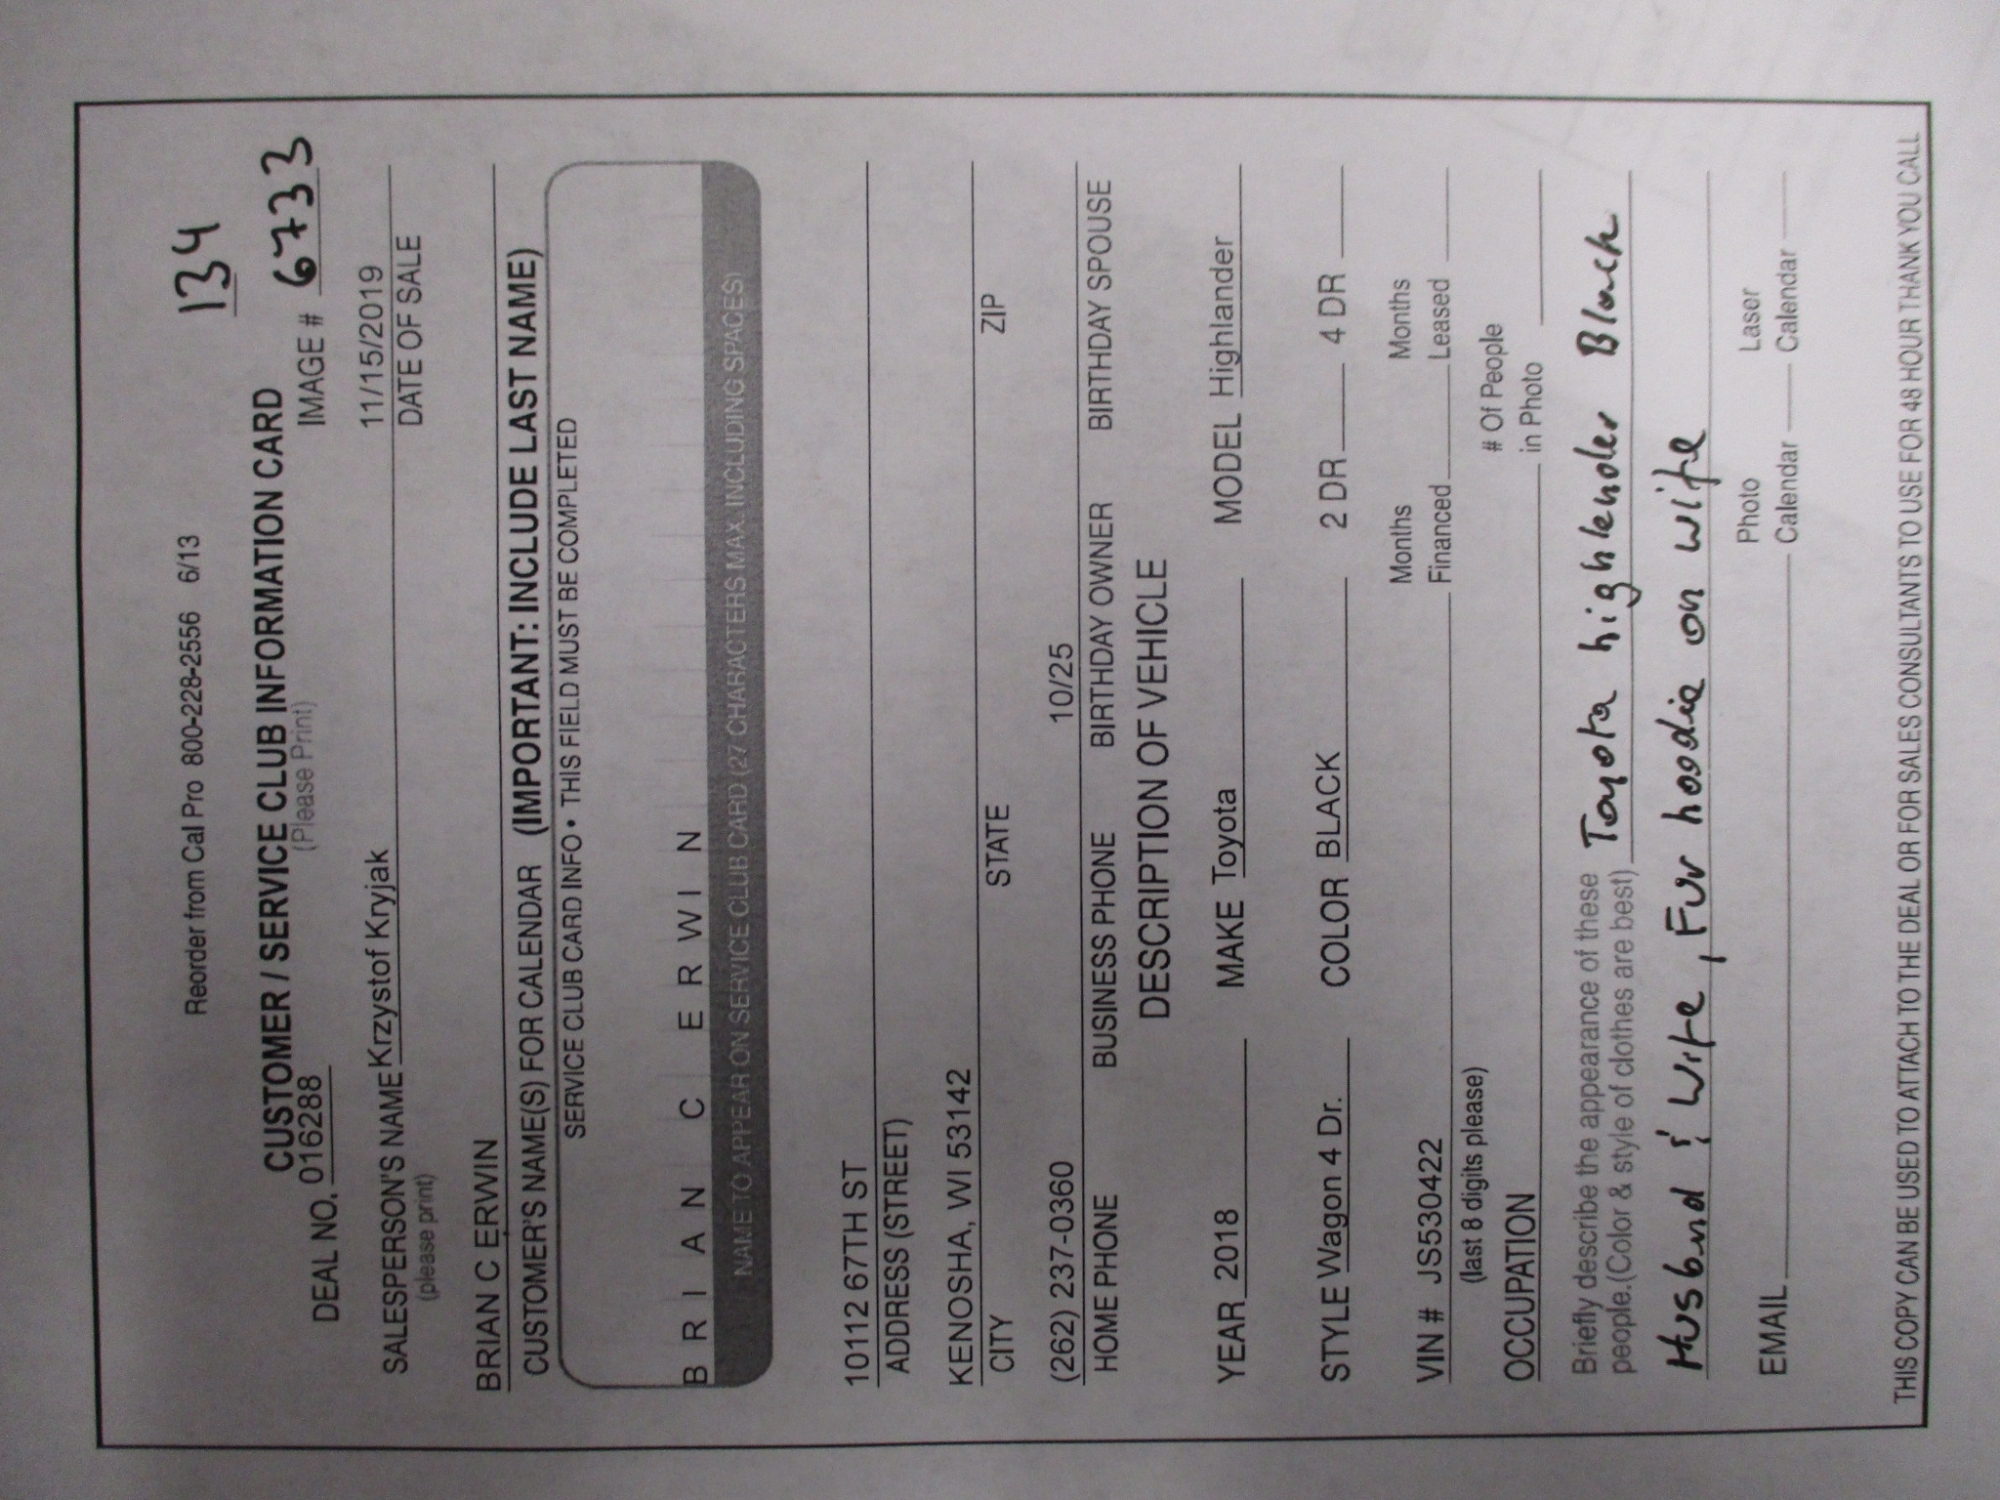 Reorder from Cal Pro 800-228-2556 6/13
134
CUSTOMER / SERVICE CLUB INFORMATION CARD
(Please Print)
DEAL NO. 016288 IMAGE # 6733
SALESPERSON'S NAME Krzystof Kryjak 11/15/2019
(please print) DATE OF SALE
BRIAN C ERWIN
CUSTOMER'S NAME(S) FOR CALENDAR (IMPORTANT: INCLUDE LAST NAME)
SERVICE CLUB CARD INFO • THIS FIELD MUST BE COMPLETED
B R I A N C E R W I N
NAME TO APPEAR ON SERVICE CLUB CARD (27 CHARACTERS MAX INCLUDING SPACES)
10112 67TH ST
ADDRESS (STREET)
KENOSHA, WI 53142
CITY STATE ZIP
(262) 237-0360 10/25
HOME PHONE BUSINESS PHONE BIRTHDAY OWNER BIRTHDAY SPOUSE
DESCRIPTION OF VEHICLE
YEAR 2018 MAKE Toyota MODEL Highlander
STYLE Wagon 4 Dr. COLOR BLACK 2 DR 4 DR
Months Months
VIN # JS530422 Financed Leased
(last 8 digits please)
# Of People
OCCUPATION in Photo
Briefly describe the appearance of these
people.(Color & style of clothes are best) Toyota highlender Black
Husband & Wife, Fur hoodie on wife
Photo Laser
EMAIL Calendar Calendar
THIS COPY CAN BE USED TO ATTACH TO THE DEAL OR FOR SALES CONSULTANTS TO USE FOR 48 HOUR THANK YOU CALL